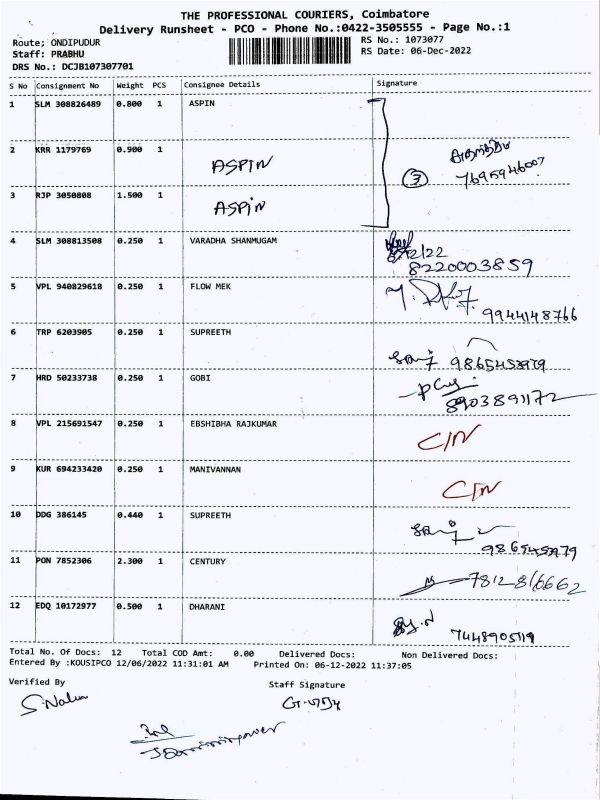 THE PROFESSIONAL COURIERS, Coimbatore
Delivery Runsheet - PCO - Phone No.:0422-3505555 - Page No.:1
Route; ONDIPUDUR RS No.: 1073077
Staff: PRABHU RS Date: 06-Dec-2022
DRS No.: DCJB107307701
S No Consignment No Weight PCS Consignee Details Signature
1 SLM 308826489 0.800 1 ASPIN
2 KRR 1179769 0.900 1 ASPIN
3 7695946007
3 RJP 3050808 1.500 1 ASPIN
4 SLM 308813508 0.250 1 VARADHA SHANMUGAM
8220003859
5 VPL 940829618 0.250 1 FLOW MEK
9944148766
6 TRP 6203905 0.250 1 SUPREETH
7 HRD 50233738 0.250 1 GOBI
8903891172
8 VPL 215691547 0.250 1 EBSHIBHA RAJKUMAR C/N
9 KUR 694233420 0.250 1 MANIVANNAN C/N
10 DDG 386145 0.440 1 SUPREETH
11 PON 7852306 2.300 1 CENTURY
12 EDQ 10172977 0.500 1 DHARANI
Total No. Of Docs: 12 Total COD Amt: 0.00 Delivered Docs: Non Delivered Docs:
Entered By :KOUSIPCO 12/06/2022 11:31:01 AM Printed On: 06-12-2022 11:37:05
Verified By Staff Signature